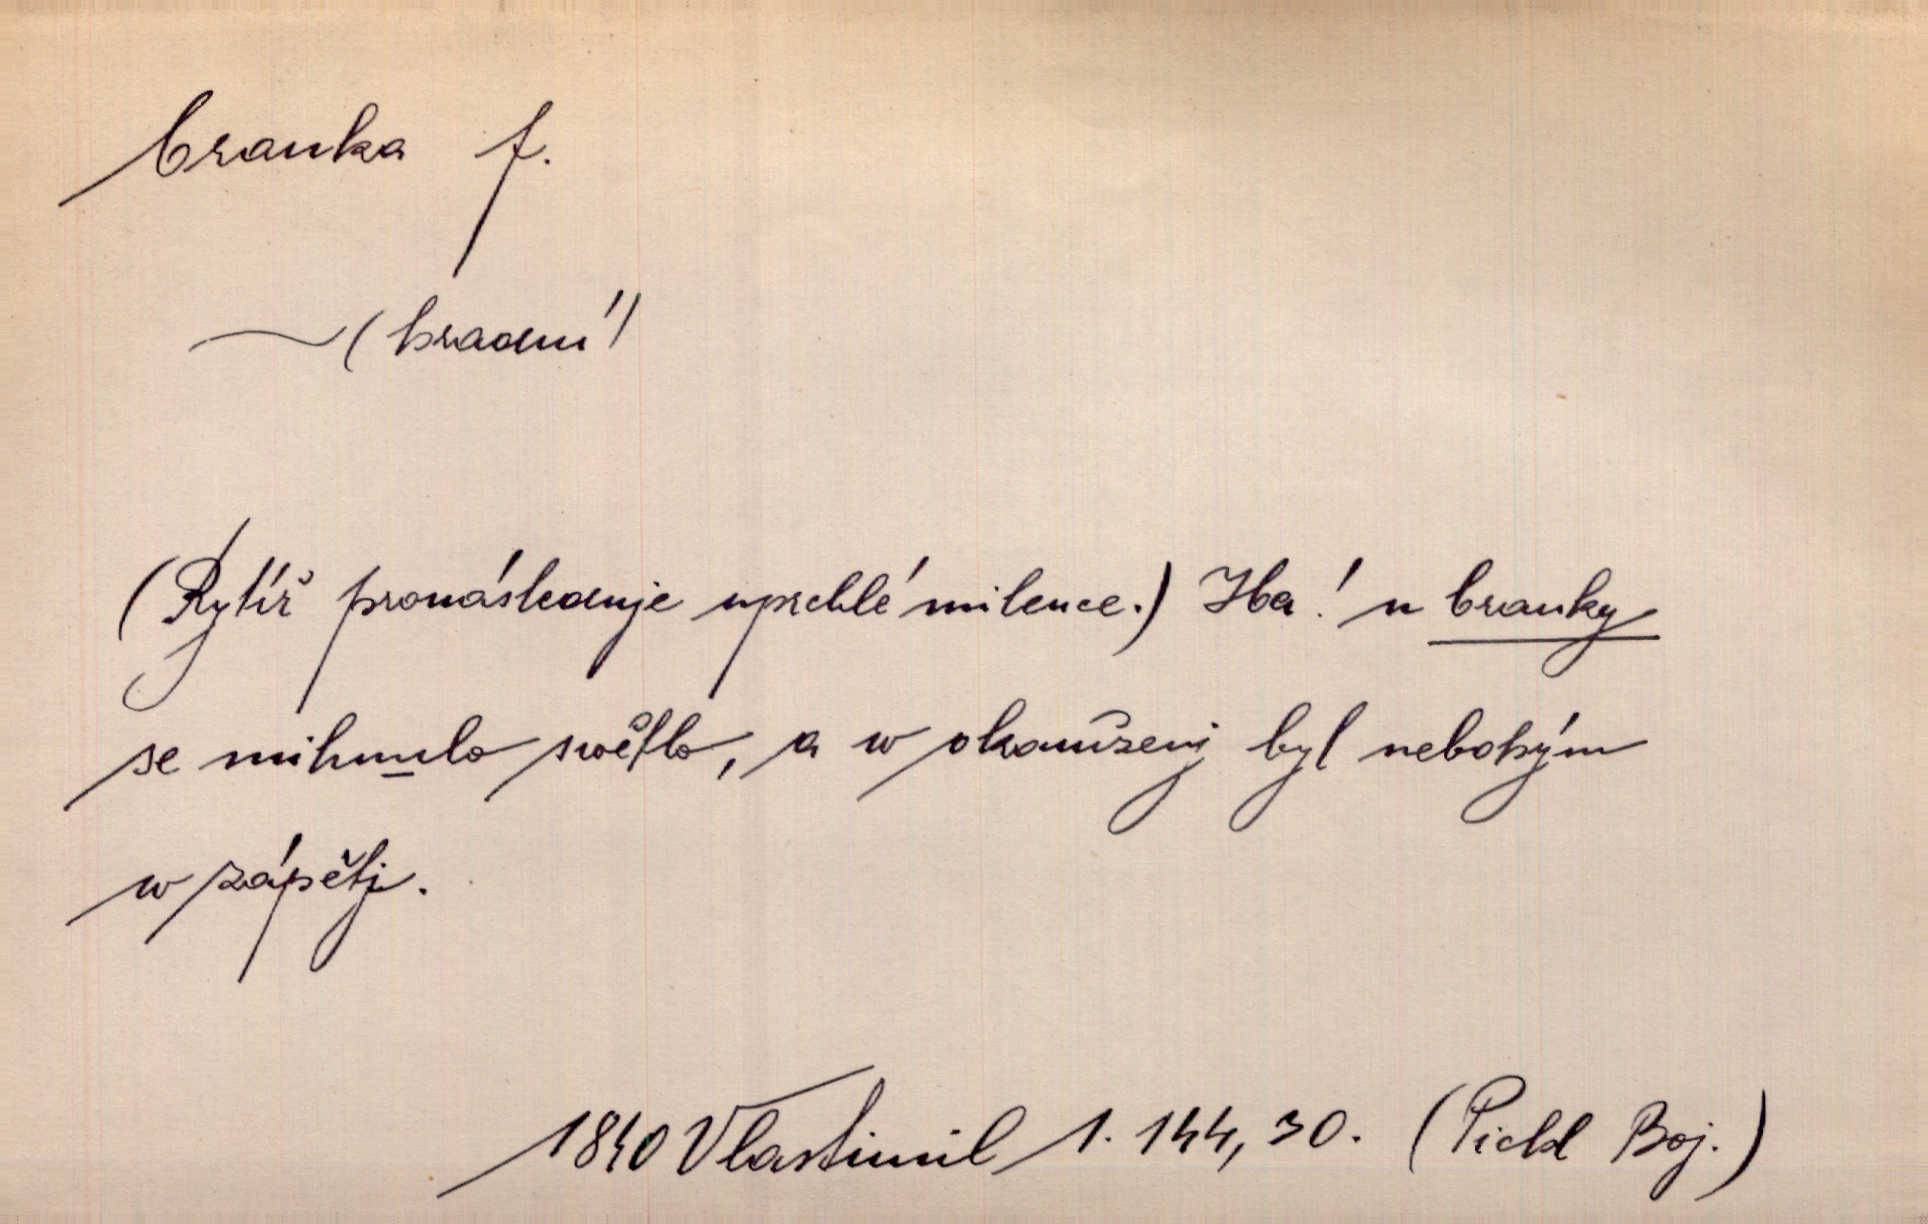 branka f.
(hradní)
(Rytíř pronásleduje uprchlé milence.) Ha! u branky
se mihnulo swětlo, a w okamženj byl nebohým
w zápětj.
1840 Vlastimil 1. 144, 30. (Pickl Boj.)